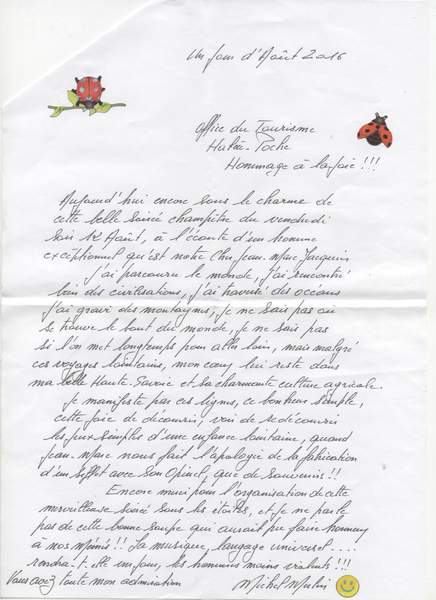 Un jour d'Août 2016
Office du Tourisme
Hommage à la joie !!!
Aujourd'hui encore sous le charme de
cette belle soirée champêtre du vendredi
soir 12 Août, à l'écoute d'un homme
exceptionnel qu'est notre cher Jean-Marc Jacquin
j'ai parcouru le monde, j'ai rencontré
bien des civilisations, j'ai traversé des océans
j'ai gravi des montagnes, je ne sais pas où
se trouve le bout du monde, je ne sais pas
si l'on met longtemps pour aller loin, mais malgré
ces voyages lointains, mon coeur lui reste dans
ma belle Haute-Savoie et sa charmante culture agricole.
Je manifeste par ces lignes, ce bonheur simple,
cette joie de découvrir, voir de redécouvrir
les jeux simples d'une enfance lointaine, quand
Jean-Marc nous fait l'apologie de la fabrication
d'un sifflet avec son Opinel, que de souvenirs !!
Encore merci pour l'organisation de cette
merveilleuse soirée sous les étoiles, et je ne parle
pas de cette bonne soupe qui aurait pu faire honneur
à nos Mémés !! La musique, langage universel ....
rendra-t-elle un jour, les hommes moins violents !!!
Vous avez toute mon admiration
Michel